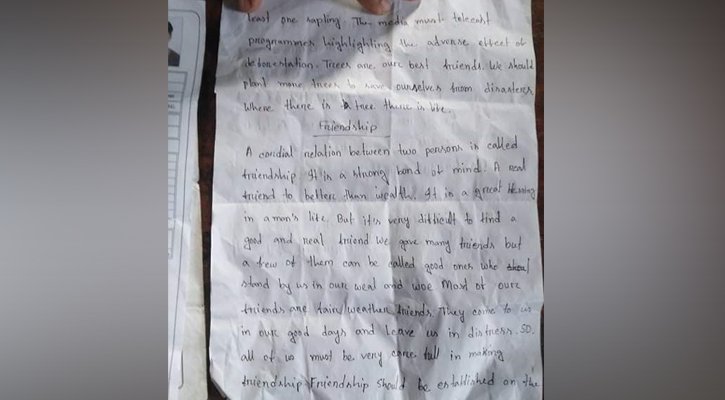 least one sapling. The media must telecast
programmes highlighting the adverse effect of
deforestation. Trees are our best friends. We should
plant more trees to save ourselves from disasters
where there is tree there is life.
Friendship
A cordial relation between two persons is called
friendship. It is a strong bond of mind. A real
friend to better than wealth. It is a great blessing
in a man's life. But it's very difficult to find a
good and real friend we gave many friends but
a few of them can be called good ones who
stand by us in our weal and woe Most of our
friends are fair/weather friends. They come to us
in our good days and leave us in distress. SO.
all of us must be very care full in making
friendship Friendship should be established on the